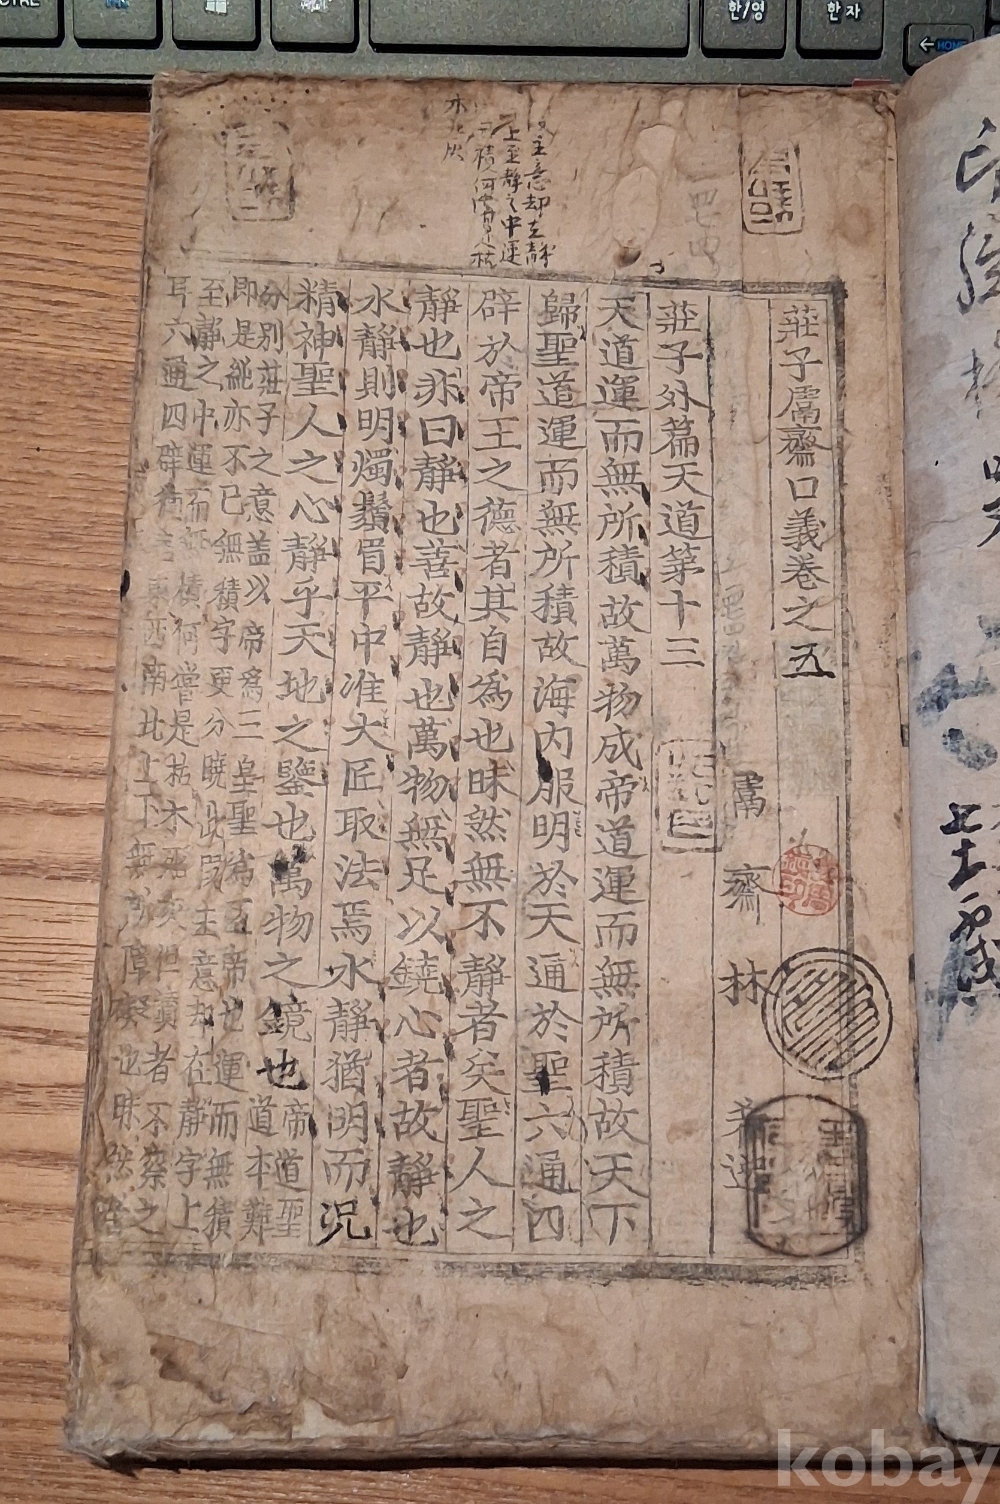 莊子鬳齋口義卷之五
鬳齋林希逸
莊子外篇天道第十三
天道運而無所積故萬物成帝道運而無所積故天下
歸聖道運而無所積故海內服明於天通於聖六通四
辟於帝王之德者其自爲也昧然無不靜者矣聖人之
靜也非曰靜也善故靜也萬物無足以鐃心者故靜也
水靜則明燭鬚眉平中准大匠取法焉水靜猶明而況
精神聖人之心靜乎天地之鑒也萬物之鏡也
帝道聖道本難
分別莊子之意盖以帝爲三皇聖爲五帝也運而無積
即是純亦不已無積字更分曉此段主意却在靜字上
至靜之中運而無積何嘗是枯木死灰但讀者不察之
耳六通四辟猶言東西南北上下無所障礙也昧然
主意却在靜
上至靜之中運
積何嘗是枯
木死灰
kobay
한/영
한자
HOME
CTRL